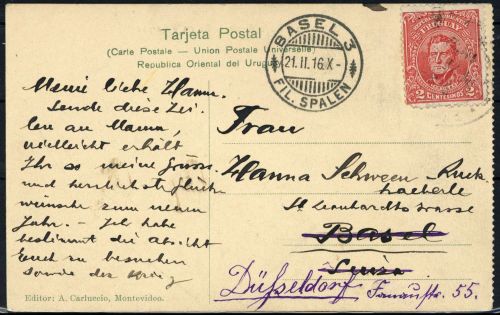 Tarjeta Postal
(Carte Postale — Union Postale Universelle)
Republica Oriental del Uruguay
BASEL 3
21.II.16 X-
FIL. SPALEN
URUGUAY
2 CENTESIMOS 2
Meine liebe Hanna.
Sende diese Zei
len an Mama,
vielleicht erhält
Ihr so meine Grüsse
und herzlichste Glück
wünsche zum neuen
Jahr. — Ich habe
bestimmt die Absicht
Euch zu besuchen
sonde der
Frau
Hanna
St Leonhardtsstrasse
Basel
Suiza
Düsseldorf 55.
Editor: A. Carluccio, Montevideo.